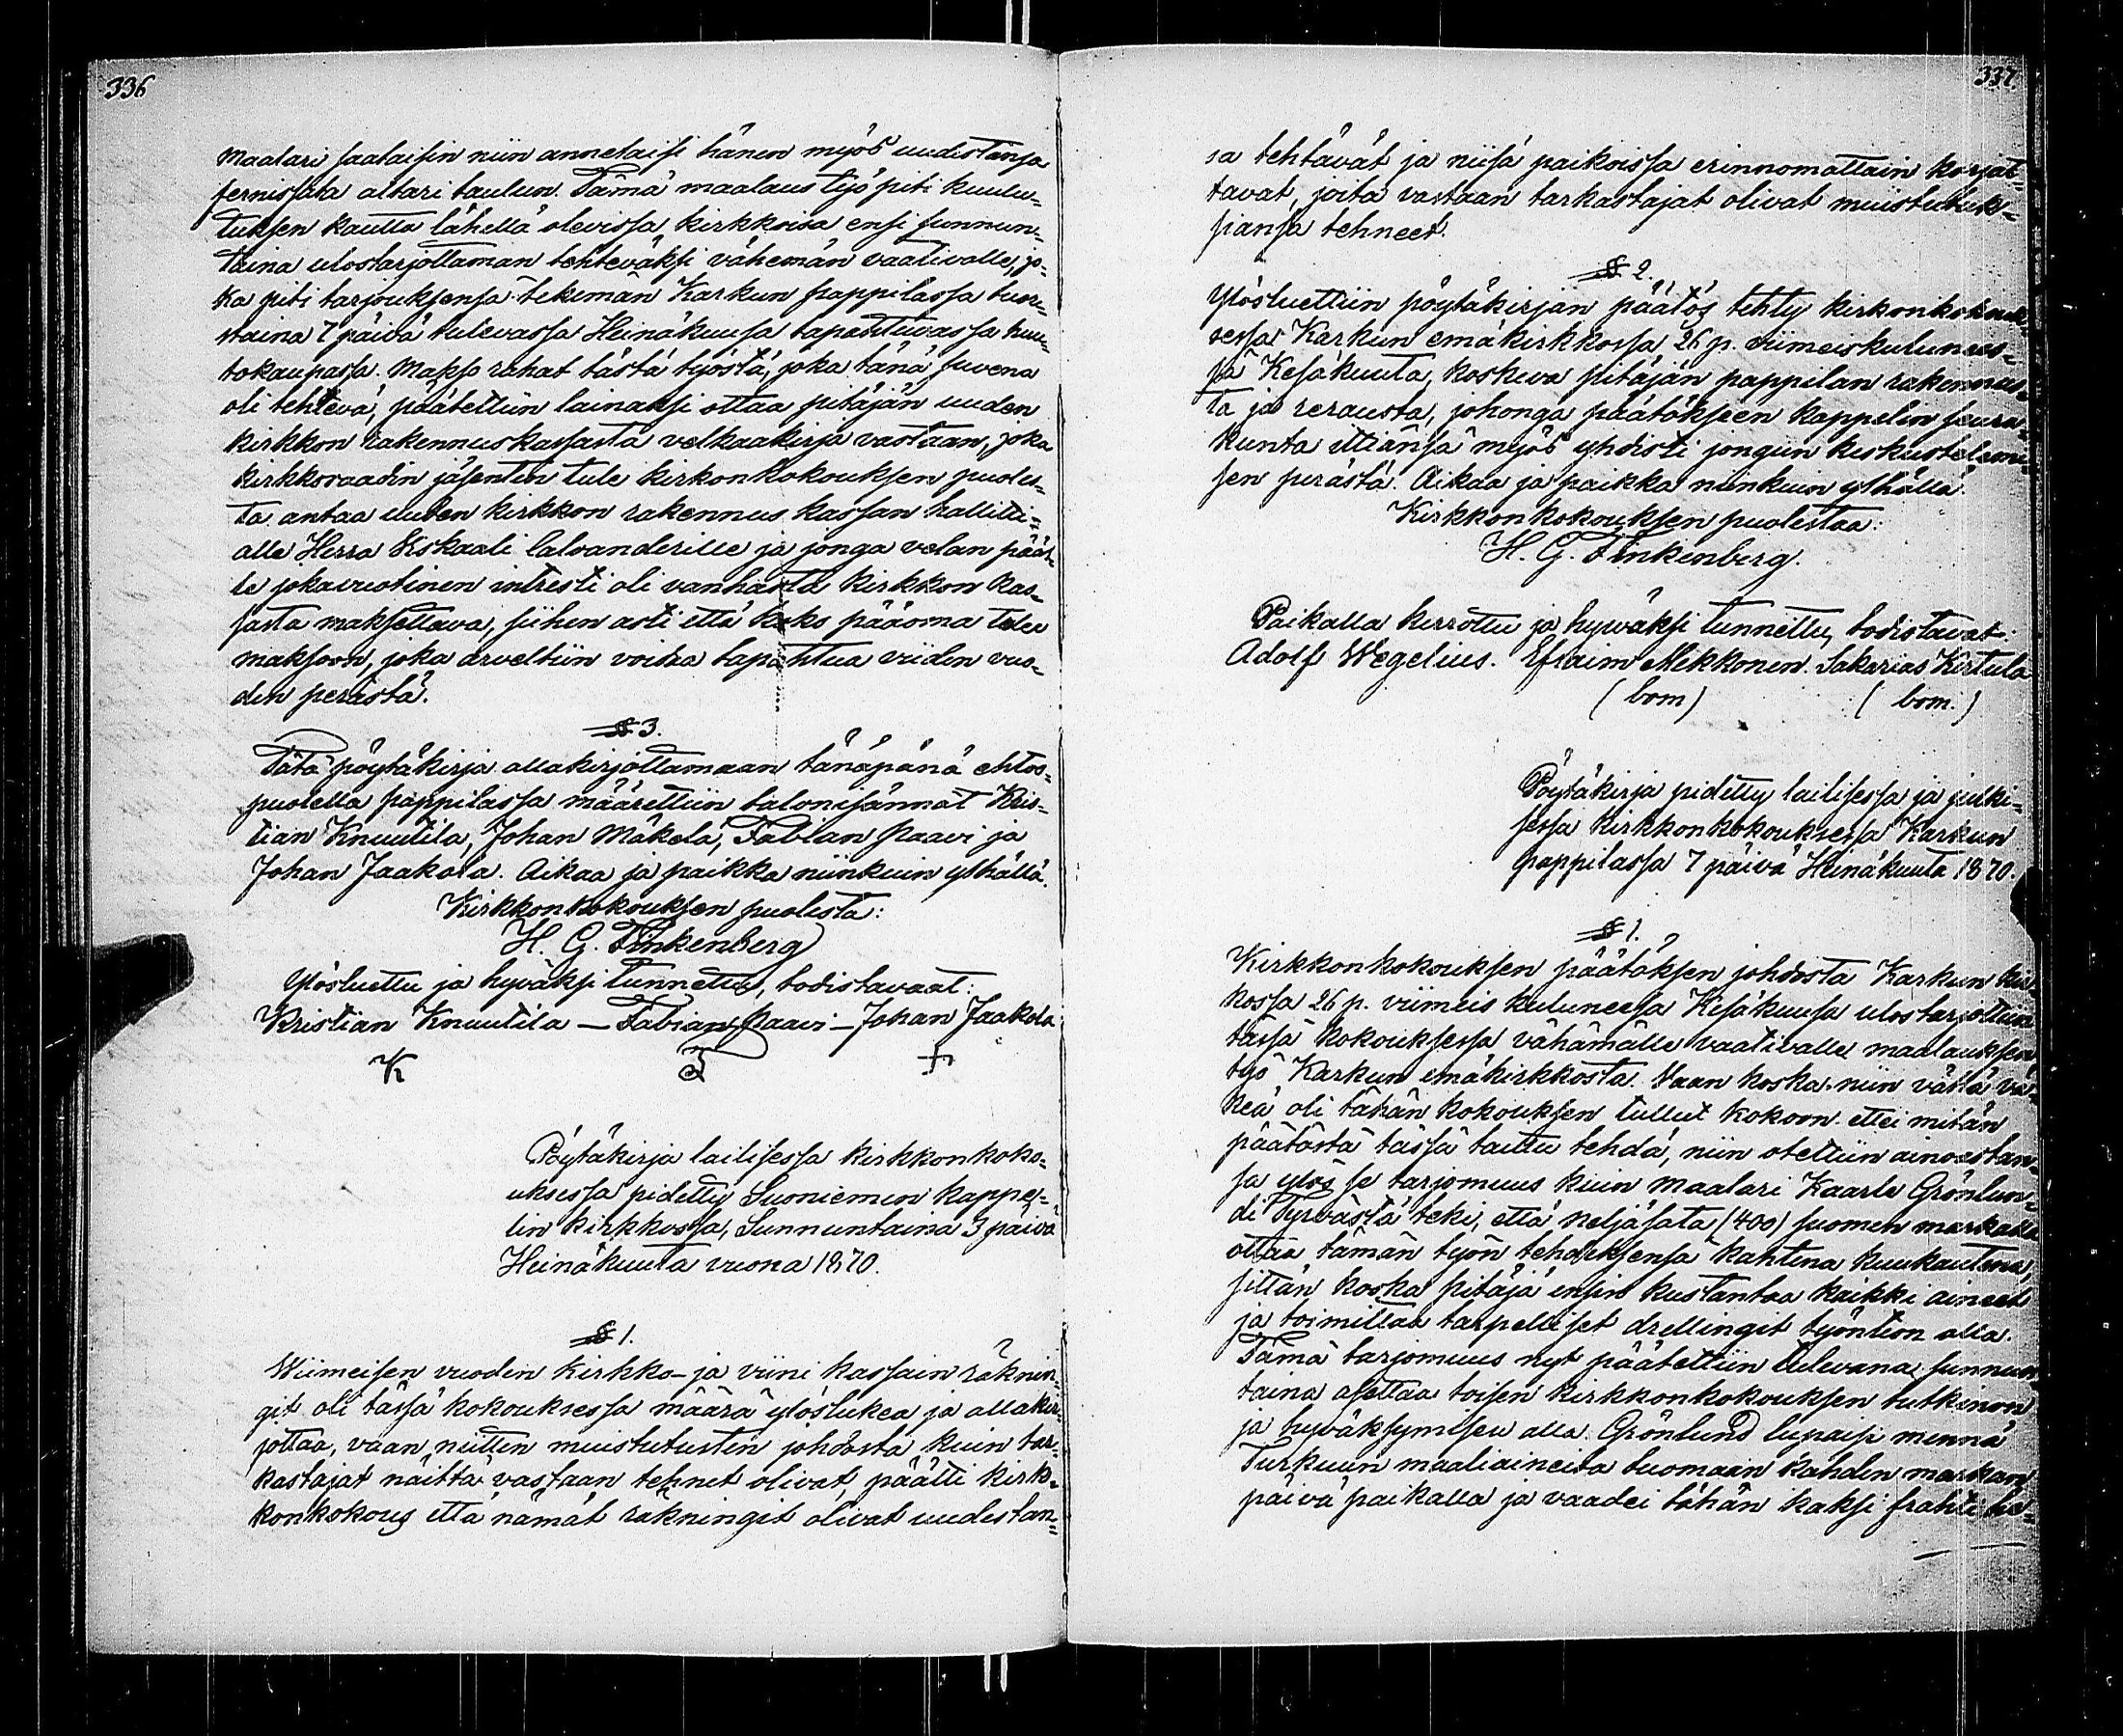 336
maalari saataisin niin annetaisi hänen myös uudistansa
fernissata altari taulun. Tämä maalaus työ piti kuulu-
tuksen kautta lähellä olevissa kirkkoisa ensi sunnun-
taina ulostarjottaman tehteväksi vähemän vaativalle, jo-
ka piti tarjouksensa tekemän Karkun pappilassa tuor-
staina 7 päivä tulevassa Heinäkuusa tapahtuvassa huu-
tokaupassa. Makso rahat tästä työstä, joka tänä suvena
oli tehtevä, päätettiin lainaksi ottaa pitäjän uuden
kirkkon rakennuskassasta velkaakirja vastaan, joka
kirkkoraadin jäsenten tule kirkonkokouksen puoles-
ta antaa uuden kirkkon rakennus kassan hallitti-
alle Herra Kskaali Lalvanderille ja jonga velan pääl-
le jokavuotinen intresti oli vanhasta kirkkon kas-
sasta maksettava, siihen asti että koko pääoma tulee
maksoon, joka arveltiin voitra tapahtua viiden vuo-
den perästä.
§ 3.
Tätä pöytäkirja allakirjottamaan tänäpänä ehtos-
puolella pappilassa määrettiin talonisännät Kris-
tian Knuutila, Johan Mäkelä, Fabian Paavi ja
Johan Jaakola. Aikaa ja paikka niinkuin ylhällä.
Kirkkonkokouksen puolesta:
H. G. Finkenberg
Ylösluettu ja hyväksi tunnettu, todistavaat:
Kristian Knuutila – Fabian Paavi – Johan Jaakola
K F +
Pöytäkirja lailisessa kirkkonkoko-
uksessa pidetty Suoniemen kappe-
lin kirkkossa, Sunnuntaina 3 päivä
Heinäkuuta vuona 1870.
§ 1.
Wiimeisen vuoden kirkko- ja viini kassain räknin-
git oli tässä kokouksessa määrä ylöslukea ja allakir-
jottaa, vaan niitten muistutusten johdosta kuin tar-
kastajat näittä vastaan tehnet olivat, päätti kirk-
konkokous että nämät räkningit olivat uudestan-
337.
sa tehtävät ja niisä paikoissa erinnomattain korjat-
tavat, joita vastaan tarkastajat olivat muistutuk-
siansa tehneet.
§ 2.
Ylösluettiin pöytäkirjan päätös tehty kirkonkokouk-
sessa Karkun emäkirkkossa 26 p. viimeiskulunees-
sa Kesäkuuta, koskeva pitäjän pappilan rakennus-
ta ja reraust​a, johonga päätökseen kappelin seura-
kunta ittiänsä myös yhdisti jongun keskustelemi-
sen perästä. Aikaa ja paikka niinkuin ylhällä.
Kirkkonkokouksen puolestaa:
H. G. Finkenberg.
Paikalla kerrottu ja hywäksi tunnettu, todistavat:
Adolf Wegelius. Efraim Mekkonen. Sakarias Kertula
(bom) (bom.)
Pöytäkirja pidetty lailisessa ja julki-
sessa kirkkonkokouksessa Karkun
pappilassa 7 päivä Heinäkuuta 1870.
§ 1.
Kirkkonkokouksen päätöksen johdosta Karkun kir-
kossa 26 p. viimeis kuluneesa Kesäkuusa ulostarjottua
tässä kokouksessa vähämälle vaativalle maalauksen
työ Karkun emäkirkkosta. Vaan koska niin vähä vä-
keä oli tähän kokouksen tullut kokoon ettei mitän
päätöstä tässä taittu tehdä, niin otettiin ainoastan-
sa ylös se tarjomuus kuin maalari Kaarle Grönlun-
di Tyrväстä teki, että neljäsata (400) suomen markalla
ottaa tämän työn tehdäksensä kahtena kuukautena,
sittän koska pitäjä ensin kustantaa kaikki aineet
ja toimittaa tarpeliset drellingit työntön alla.
Tämä tarjomuus nyt päätettiin tulevana sunnun-
taina asettaa toisen kirkkonkokouksen tutkinon
ja hyväksymisen alla. Grönlund lupaisi mennä
Turkuun maaliaineita tuomaan kahden markan
päivä paikalla ja vaadei tähän kaksi frahti he-